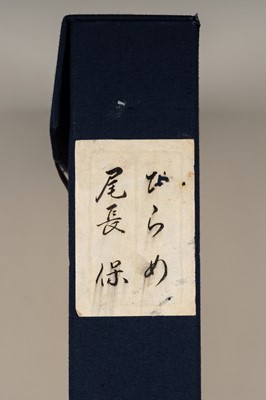 ひらめ
尾長 保